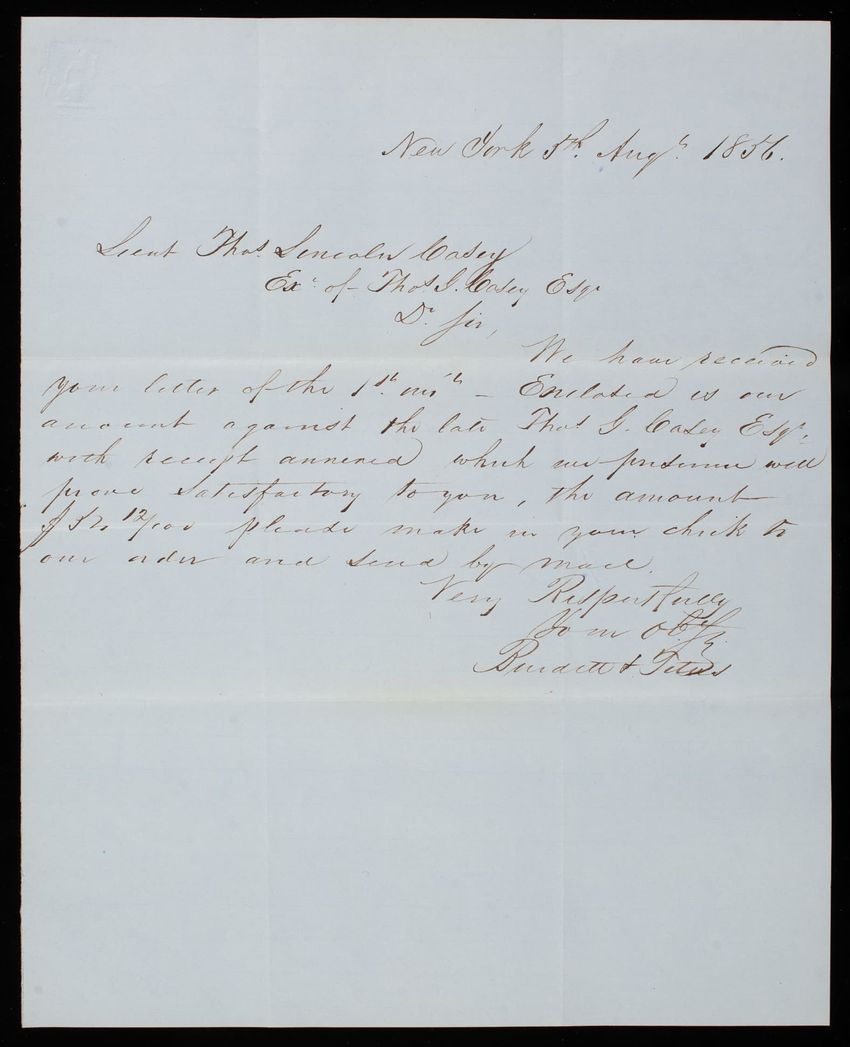 New York 5th. Augt. 1856.
Lieut Thos. Lincoln Casey
Exr. of Thos G. Casey Esqr
Dr. Sir,
We have received
your letter of the 1st. inst. – Enclosed is our
account against the late Thos G. Casey Esqr.
with receipt annexed which we presume will
prove satisfactory to you, the amount
12/100 please make in your check to
our order and send by mail.
Very Respectfully
Your Obt.
Burdett & Titus